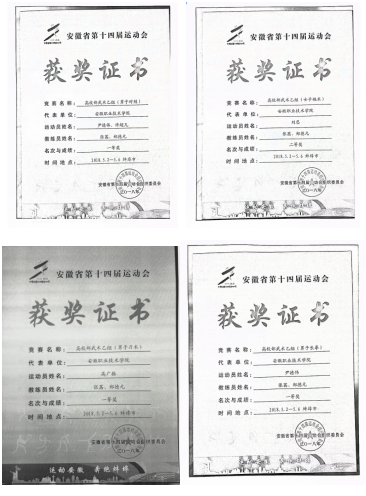 安徽省第十四届运动会
获奖证书
竞赛名称：高校部武术乙组（男子对练）
代表单位：安徽职业技术学院
运动员姓名：
教练员姓名：张磊、
名次与成绩：一等奖
时间地点：2018.5.3-5.6 蚌埠市
安徽省第十四届运动会组织委员会
二〇一八年
安徽省第十四届运动会
获奖证书
竞赛名称：高校部武术乙组（女子
代表单位：安徽职业技术学院
运动员姓名：
教练员姓名：张磊、
名次与成绩：二等奖
时间地点：2018.5.3-5.6 蚌埠市
安徽省第十四届运动会组织委员会
二〇一八年
安徽省第十四届运动会
获奖证书
竞赛名称：高校部武术乙组（男子
代表单位：安徽职业技术学院
运动员姓名：
教练员姓名：张磊、
名次与成绩：一等奖
时间地点：2018.5.3-5.6 蚌埠市
安徽省第十四届运动会组织委员会
二〇一八年
运动安徽 奔跑蚌埠
安徽省第十四届运动会
获奖证书
竞赛名称：高校部武术乙组（男子长拳）
代表单位：安徽职业技术学院
运动员姓名：
教练员姓名：张磊、
名次与成绩：一等奖
时间地点：2018.5.3-5.6 蚌埠市
安徽省第十四届运动会组织委员会
二〇一八年